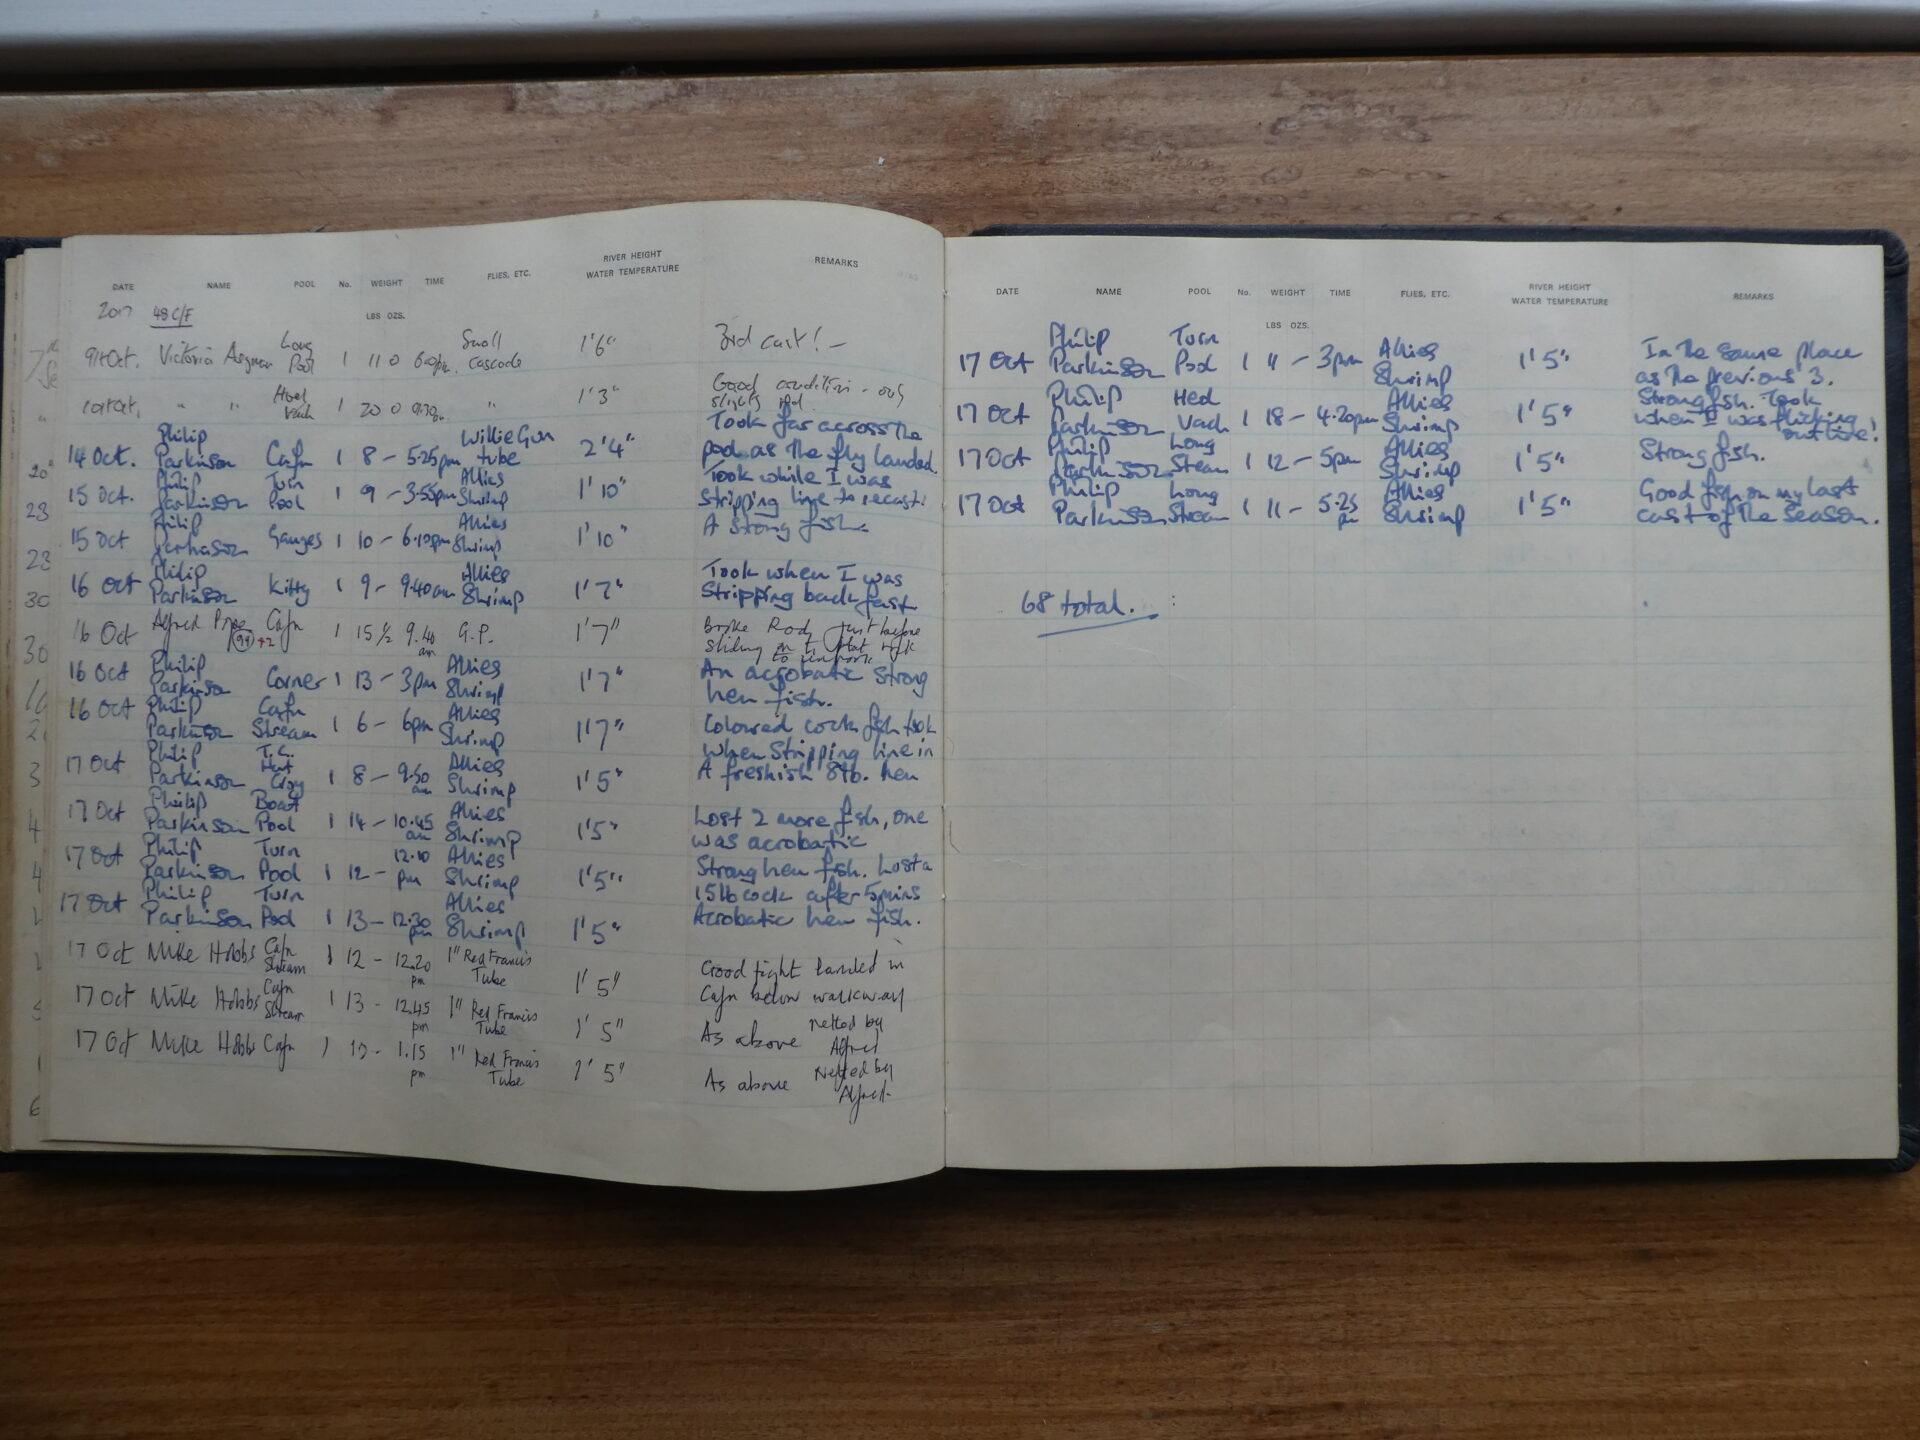 DATE NAME POOL No. WEIGHT TIME FLIES, ETC. RIVER HEIGHT WATER TEMPERATURE REMARKS
LBS OZS.
2017 48 C/F
9th Oct. Victoria Long Pool 1 11 0 6.0pm. Small cascade 1'6" 3rd cast! –
10th Oct. " " Vach 1 20 0 " 1'3" Good condition - only slightly red.
14 Oct. Philip Parkinson Cafn 1 8 – 5.25pm Willie Gun tube 2'4" Took far across the pool as the fly landed.
15 Oct. Philip Parkinson Turn Pool 1 9 – 3.55pm Allies Shrimp 1'10" Took while I was stripping line to recast.
15 Oct Philip Parkinson Ganges 1 10 – 6.10pm Allies Shrimp 1'10" A strong fish.
16 Oct Philip Parkinson Kitty 1 9 – 9.40am Allies Shrimp 1'7" Took when I was stripping back fast
16 Oct Alfred Pope 94 +2 Cafn 1 15 1/2 9.40 am G.P. 1'7" Broke Rod, just before sliding on to that rock
16 Oct Philip Parkinson Corner 1 13 – 3pm Allies Shrimp 1'7" An acrobatic strong hen fish.
16 Oct Philip Parkinson Cafn Stream 1 6 – 6pm Allies Shrimp 1'7" Coloured cock fish took when stripping line in
17 Oct Philip Parkinson T.C. Hut Croy 1 8 – 9.50 am Allies Shrimp 1'5" A freshish 8lb. hen
17 Oct Philip Parkinson Boat Pool 1 14 – 10.45 am Allies Shrimp 1'5" Lost 2 more fish, one was acrobatic
17 Oct Philip Parkinson Turn Pool 1 12 – 12.10 pm Allies Shrimp 1'5" Strong hen fish. Lost a 15lb cock after 5 mins
17 Oct Philip Parkinson Turn Pool 1 13 – 12.30 pm Allies Shrimp 1'5" Acrobatic hen fish.
17 Oct Mike Hobbs Cafn Stream 1 12 – 12.20 pm 1" Red Francis Tube 1'5" Good fight landed in Cafn below walkway
17 Oct Mike Hobbs Cafn Stream 1 13 – 12.45 pm 1" Red Francis Tube 1'5" As above Netted by Alfred
17 Oct Mike Hobbs Cafn 1 – 1.15 pm 1" Red Francis Tube 1'5" As above Netted by Alfred.
DATE NAME POOL No. WEIGHT TIME FLIES, ETC. RIVER HEIGHT WATER TEMPERATURE REMARKS
LBS OZS.
17 Oct Philip Parkinson Turn Pool 1 11 – 3pm Allies Shrimp 1'5" In the same place as the previous 3.
17 Oct Philip Parkinson Hed Vach 1 18 – 4.20pm Allies Shrimp 1'5" Strong fish. Took when I was flicking out line!
17 Oct Philip Parkinson Long Steam 1 12 – 5pm Allies Shrimp 1'5" Strong fish.
17 Oct Philip Parkinson Long Stream 1 11 – 5.25 pm Allies Shrimp 1'5" Good fish on my last cast of the season.
68 total.